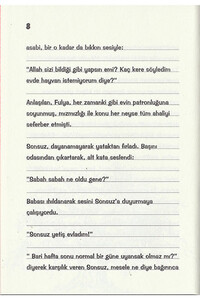 8
asabi, bir o kadar da bıkkın sesiyle:
"Allah sizi bildiği gibi yapsın emi? Kaç kere söyledim
evde hayvan istemiyorum diye?"
Anlaşılan, Fulya, her zamanki gibi evin patronluğuna
soyunmuş, mızmızlığı ile konu her neyse tüm ahaliyi
seferber etmişti.
Sonsuz, dayanamayarak yataktan fırladı. Başını
odasından çıkartarak, alt kata seslendi:
"Sabah sabah ne oldu gene?"
Babası ahıldanarak sesini Sonsuz'a duyurmaya
çalışıyordu.
"Sonsuz yetiş evladım!"
" Bari hafta sonu normal bir güne uyansak olmaz mı?"
diyerek karşılık veren Sonsuz, mesele ne diye bağırınca